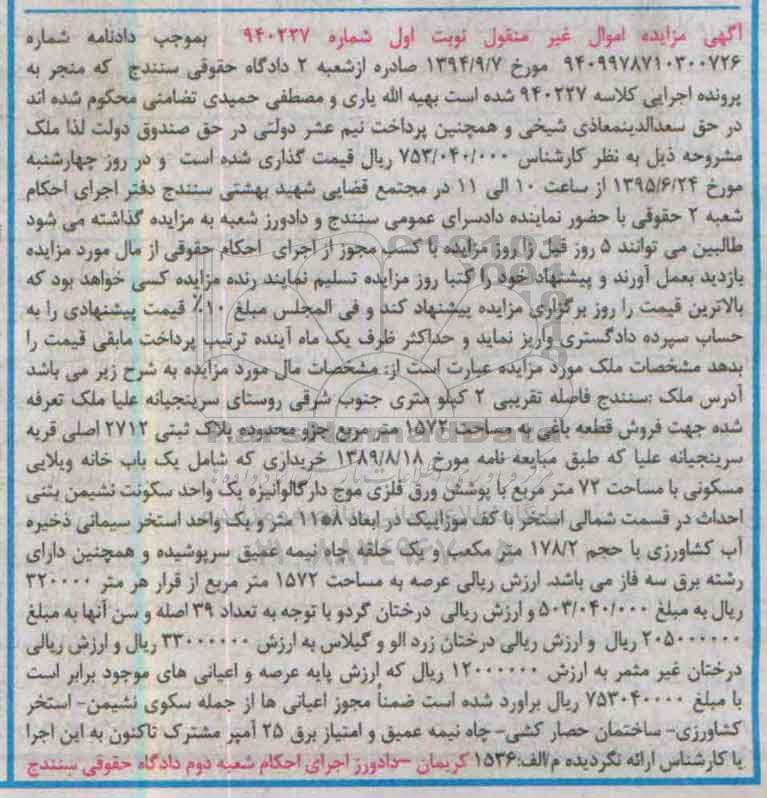 آگهی مزایده اموال غیر منقول نوبت اول شماره ۹۴۰۲۲۷ بموجب دادنامه شماره
۹۴۰۹۹۷۸۷۱۰۳۰۰۷۲۶ مورخ ۱۳۹۴/۹/۷ صادره ازشعبه ۲ دادگاه حقوقی سنندج که منجر به
پرونده اجرایی کلاسه ۹۴۰۲۲۷ شده است بهیه الله یاری و مصطفی حمیدی تضامنی محکوم شده اند
در حق سعدالدینمعاذی شیخی و همچنین پرداخت نیم عشر دولتی در حق صندوق دولت لذا ملک
مشروحه ذیل به نظر کارشناس ۷۵۳/۰۴۰/۰۰۰ ریال قیمت گذاری شده است و در روز چهارشنبه
مورخ ۱۳۹۵/۶/۲۴ از ساعت ۱۰ الی ۱۱ در مجتمع قضایی شهید بهشتی سنندج دفتر اجرای احکام
شعبه ۲ حقوقی با حضور نماینده دادسرای عمومی سنندج و دادورز شعبه به مزایده گذاشته می شود
طالبین می توانند ۵ روز قبل زا روز مزایده با کسب مجوز از اجرای احکام حقوقی از مال مورد مزایده
بازدید بعمل آورند و پیشنهاد خود را کتبا روز مزایده تسلیم نمایند رنده مزایده کسی خواهد بود که
بالاترین قیمت را روز برگزاری مزایده پیشنهاد کند و فی المجلس مبلغ ۱۰٪ قیمت پیشنهادی را به
حساب سپرده دادگستری واریز نماید و حداکثر ظرف یک ماه آینده ترتیب پرداخت مابقی قیمت را
بدهد مشخصات ملک مورد مزایده عبارت است از: مشخصات مال مورد مزایده به شرح زیر می باشد
آدرس ملک :سنندج فاصله تقریبی ۲ کیلو متری جنوب شرقی روستای سرینجیانه علیا ملک تعرفه
شده جهت فروش قطعه باغی به مساحت ۱۵۷۲ متر مربع جزو محدوده پلاک ثبتی ۲۷۱۲ اصلی قریه
سرینجیانه علیا که طبق مبایعه نامه مورخ ۱۳۸۹/۸/۱۸ خریداری که شامل یک باب خانه ویلایی
مسکونی با مساحت ۷۲ متر مربع با پوشش ورق فلزی موج دارگالوانیزه یک واحد سکونت نشیمن بتنی
احداث در قسمت شمالی استخر با کف موزاییک در ابعاد ۸*۱۱ متر و یک واحد استخر سیمانی ذخیره
آب کشاورزی با حجم ۱۷۸/۲ متر مکعب و یک حلقه چاه نیمه عمیق سرپوشیده و همچنین دارای
رشته برق سه فاز می باشد. ارزش ریالی عرصه به مساحت ۱۵۷۲ متر مربع از قرار هر متر ۳۲۰۰۰۰
ریال به مبلغ ۵۰۳/۰۴۰/۰۰۰ و ارزش ریالی درختان گردو با توجه به تعداد ۳۹ اصله و سن آنها به مبلغ
۲۰۵۰۰۰۰۰۰ ریال و ارزش ریالی درختان زرد الو و گیلاس به ارزش ۳۳۰۰۰۰۰۰ ریال و ارزش ریالی
درختان غیر مثمر به ارزش ۱۲۰۰۰۰۰۰ ریال که ارزش پایه عرصه و اعیانی های موجود برابر است
با مبلغ ۷۵۳۰۴۰۰۰۰ ریال براورد شده است ضمناً مجوز اعیانی ها از جمله سکوی نشیمن- استخر
کشاورزی- ساختمان حصار کشی- چاه نیمه عمیق و امتیاز برق ۲۵ آمپر مشترک تاکنون به این اجرا
یا کارشناس ارائه نگردیده م/الف:۱۵۳۶ کریمان -دادورز اجرای احکام شعبه دوم دادگاه حقوقی سنندج